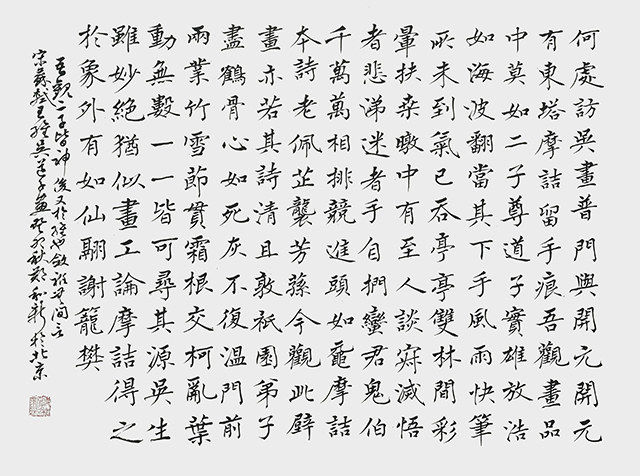 何處訪吳畫普門與開元開元
有東塔摩詰留手痕吾觀畫品
中莫如二子尊道子實雄放浩
如海波翻當其下手風雨快筆
所未到氣已吞亭亭雙林間彩
暈扶桑暾中有至人談寂滅悟
者悲涕迷者手自捫蠻君鬼伯
千萬萬相排競進頭如黿摩詰
本詩老佩芷襲芳蓀今觀此壁
畫亦若其詩清且敦祇園弟子
盡鶴骨心如死灰不復溫門前
兩叢竹雪節貫霜根交柯亂葉
動無數一一皆可尋其源吳生
雖妙絕猶似畫工論摩詰得之
於象外有如仙翮謝籠樊
吾觀二子皆神俊又於維也斂衽無間言
宋蘇軾王維吳道子畫癸卯秋鄭和新於北京